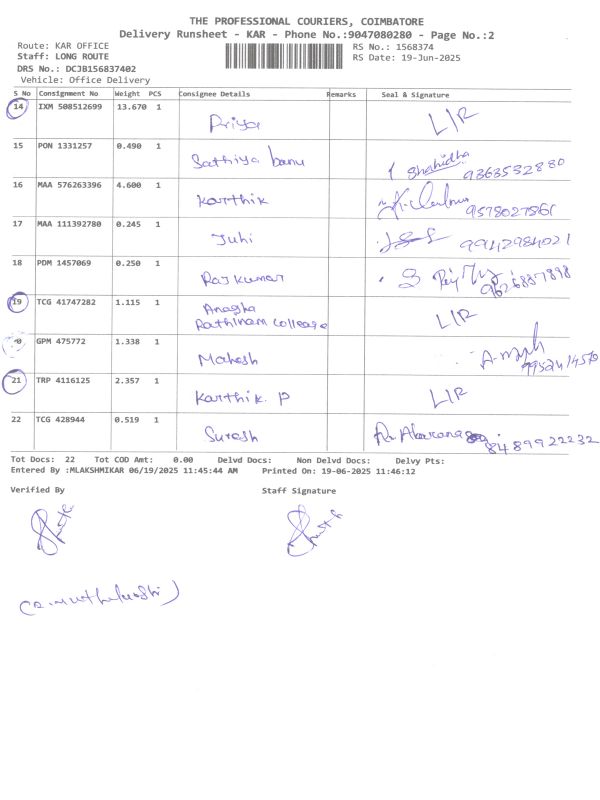 THE PROFESSIONAL COURIERS, COIMBATORE
Delivery Runsheet - KAR - Phone No.:9047080280 - Page No.:2
Route: KAR OFFICE RS No.: 1568374
Staff: LONG ROUTE RS Date: 19-Jun-2025
DRS No.: DCJB156837402
Vehicle: Office Delivery
S No Consignment No Weight PCS Consignee Details Remarks Seal & Signature
14 IXM 508512699 13.670 1 Priya L/R
15 PON 1331257 0.490 1 Sathiya banu Shahidha 9363532880
16 MAA 576263396 4.600 1 Karthik 9578027561
17 MAA 111392780 0.245 1 Juhi 9942984021
18 PDM 1457069 0.250 1 Rajkumar 9626887898
19 TCG 41747282 1.115 1 Anagha L/R
Rathinam College
0 GPM 475772 1.338 1 Mahesh
21 TRP 4116125 2.357 1 Karthik. P L/R
22 TCG 428944 0.519 1 Suresh 8489922232
Tot Docs: 22 Tot COD Amt: 0.00 Delvd Docs: Non Delvd Docs: Delvy Pts:
Entered By :MLAKSHMIKAR 06/19/2025 11:45:44 AM Printed On: 19-06-2025 11:46:12
Verified By Staff Signature